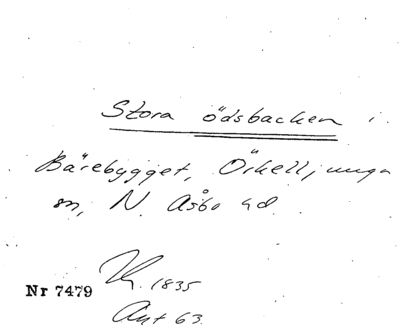 Stora ödsbacken i
Bärebygget, Örkelljunga
sn, N. Åsbo hd.
1835
Nr 7479
Ant 63.